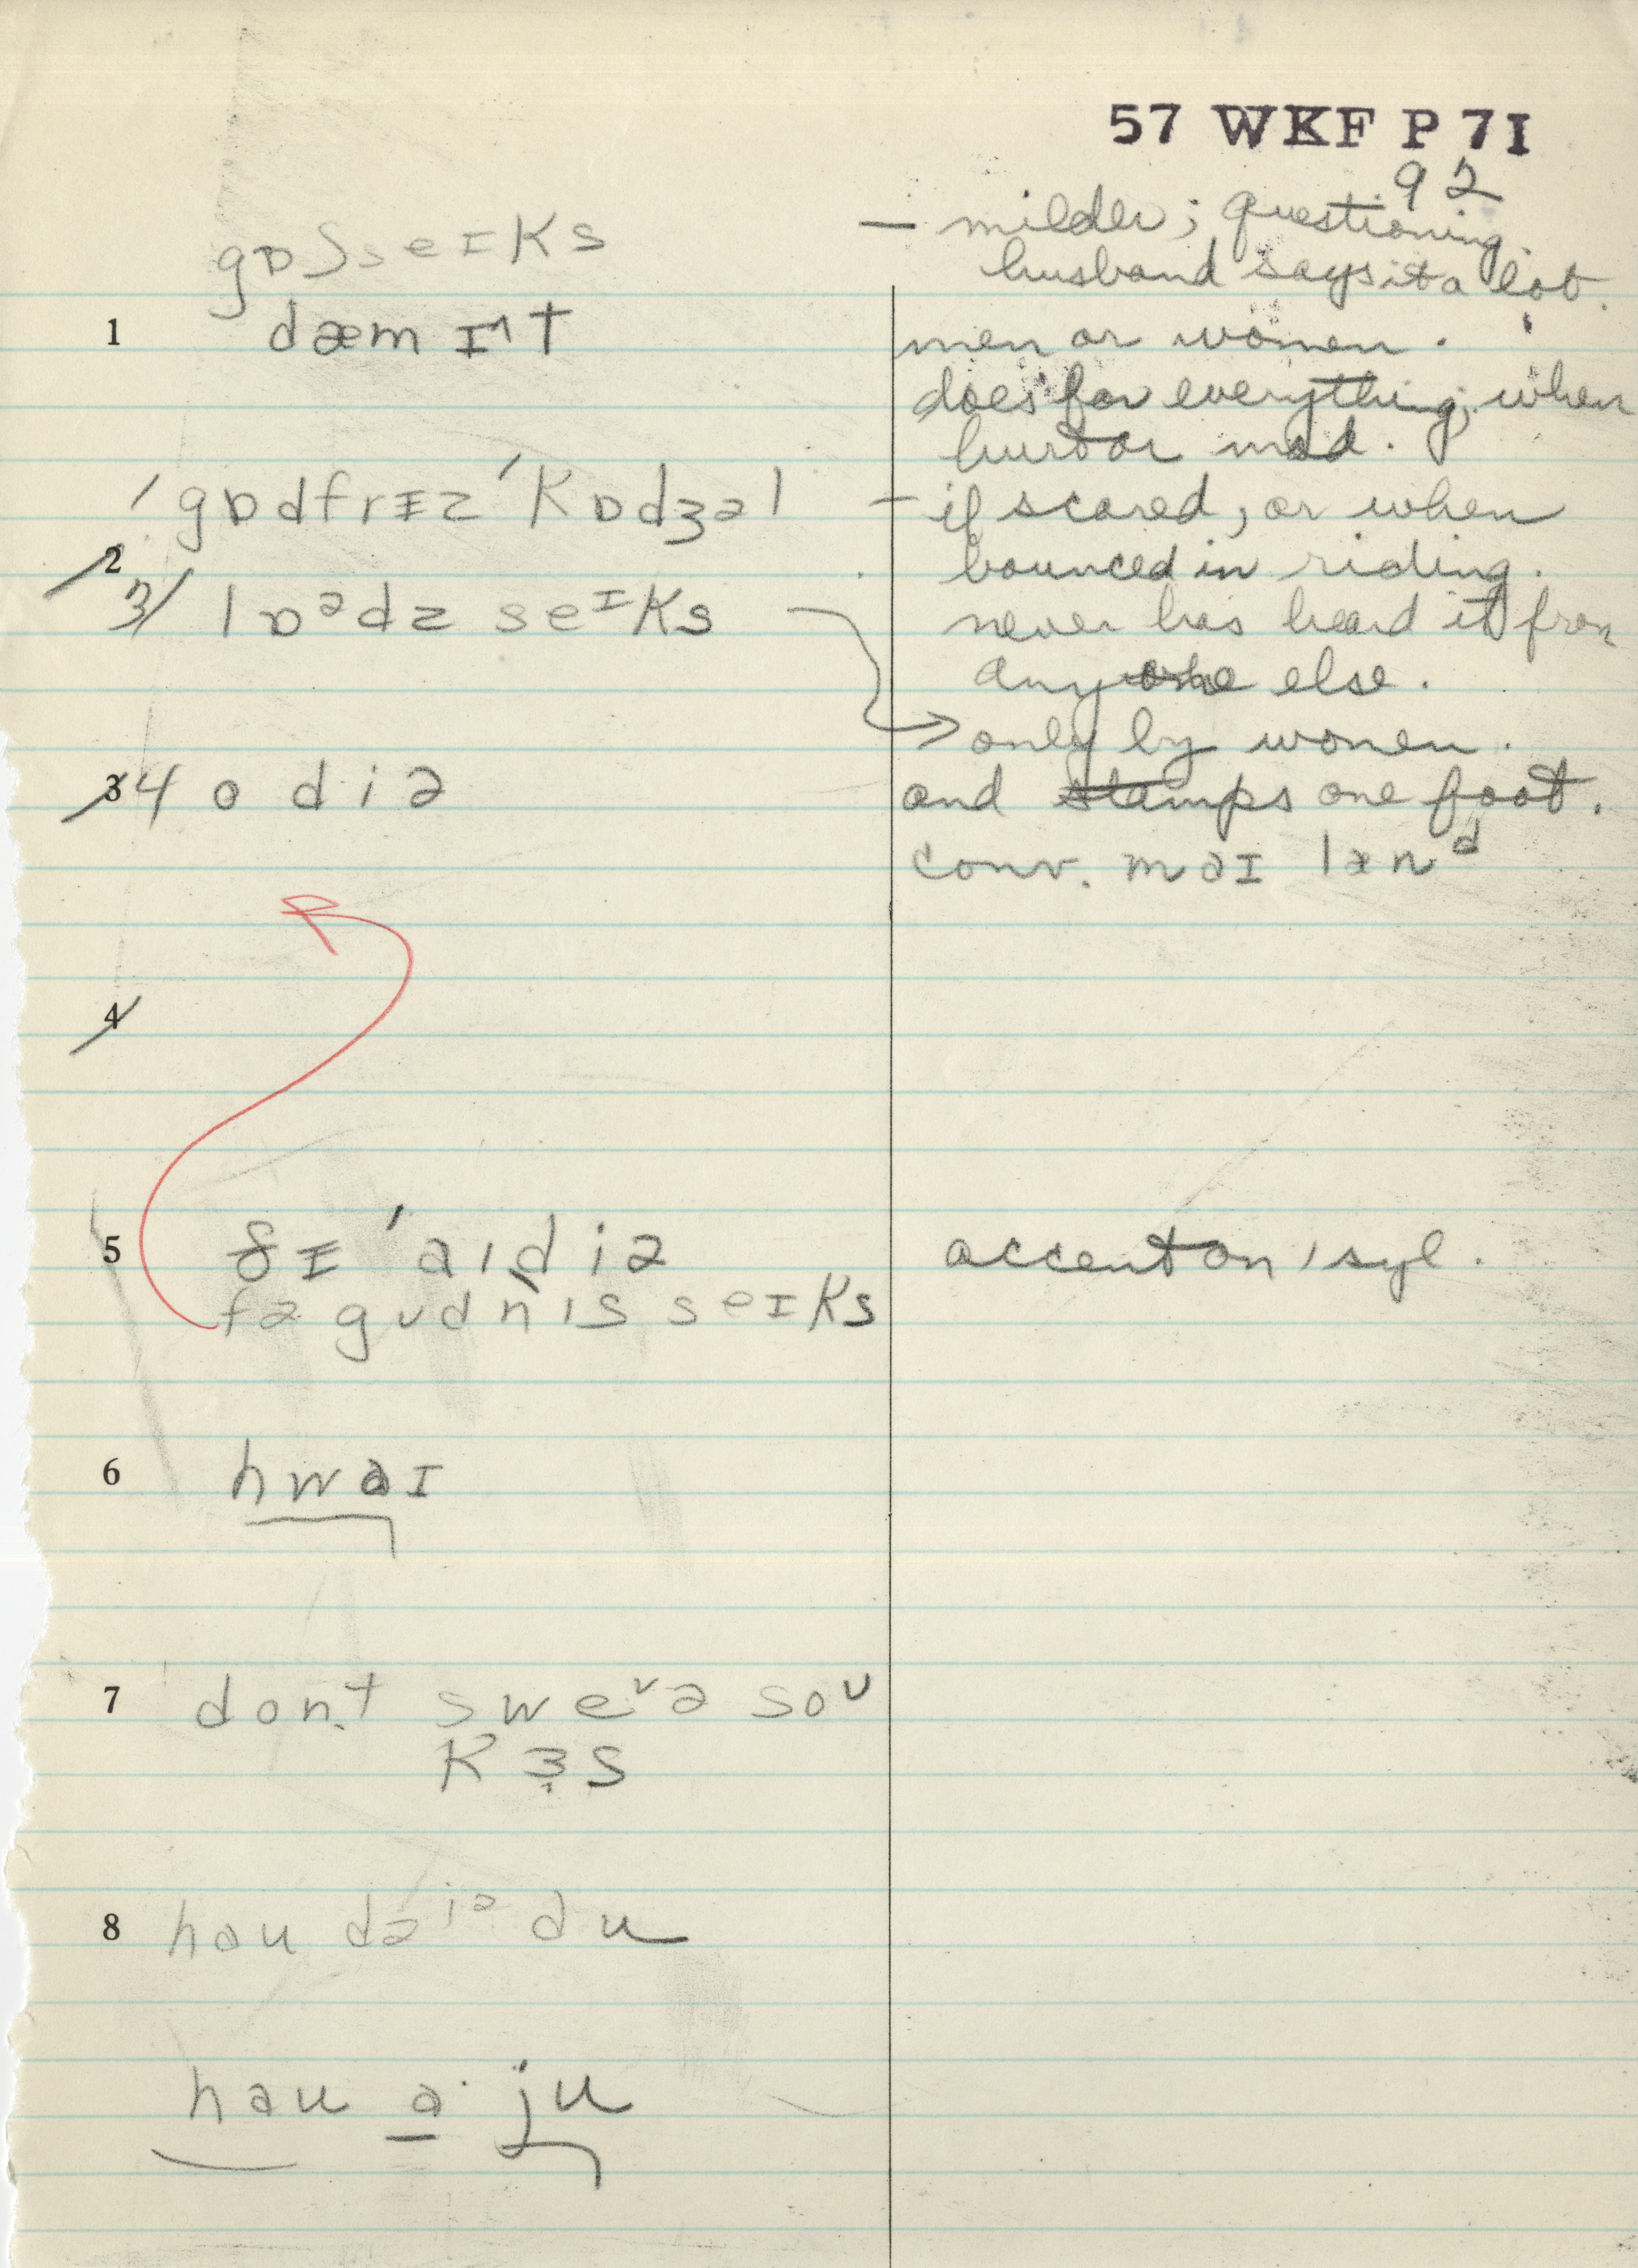 57 WKF P 7I
92
gɒʃseɪks — milder; questioning.
husband says it a lot.
1 dæm ɪʔt men or women.
does for everything; when
hurt or mad.
ˈgɒdfrɪz ˈkɒdʒəl — if scared, or when
2 bounced in riding.
3/ lɒᵊdz seᶦks never has heard it from
anyone else.
→ only by women.
3 4 o diə and stamps one foot.
conv. maɪ lænᵈ
4
5 ðɪ ˈaɪdiə accent on 1 syl.
fə gudnɪs seɪks
6 hwaɪ
7 dont sweᵛə soᶷ
kɜs
8 hau dəʲᵊ du
hau a· ju